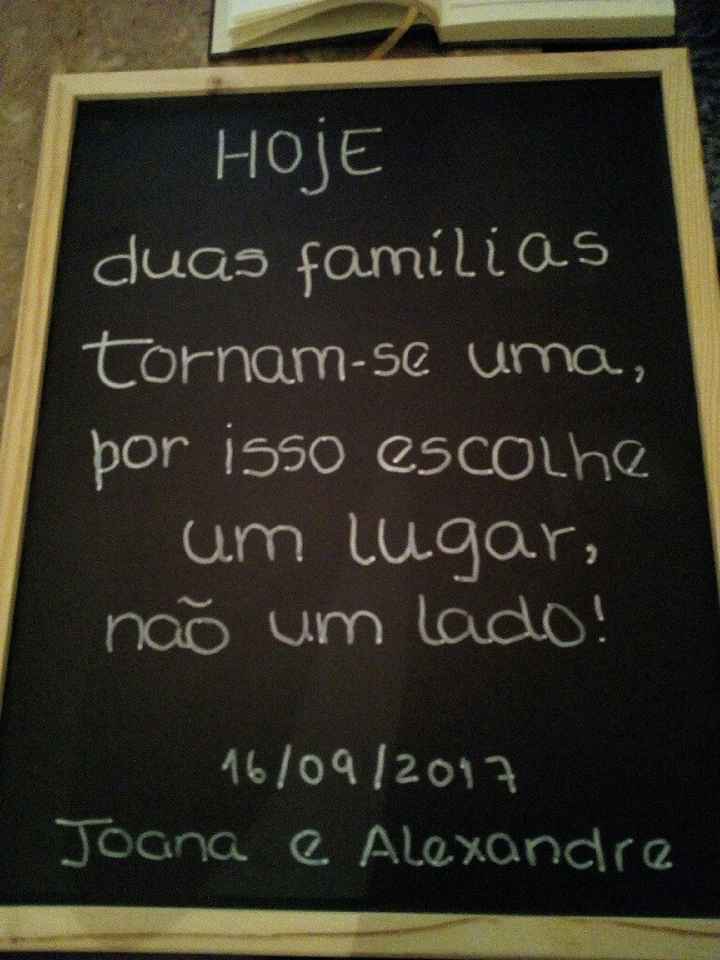 HOjE
duas famílias
tornam-se uma,
por isso escolhe
um lugar,
não um lado!
16/09/2017
Joana e Alexandre